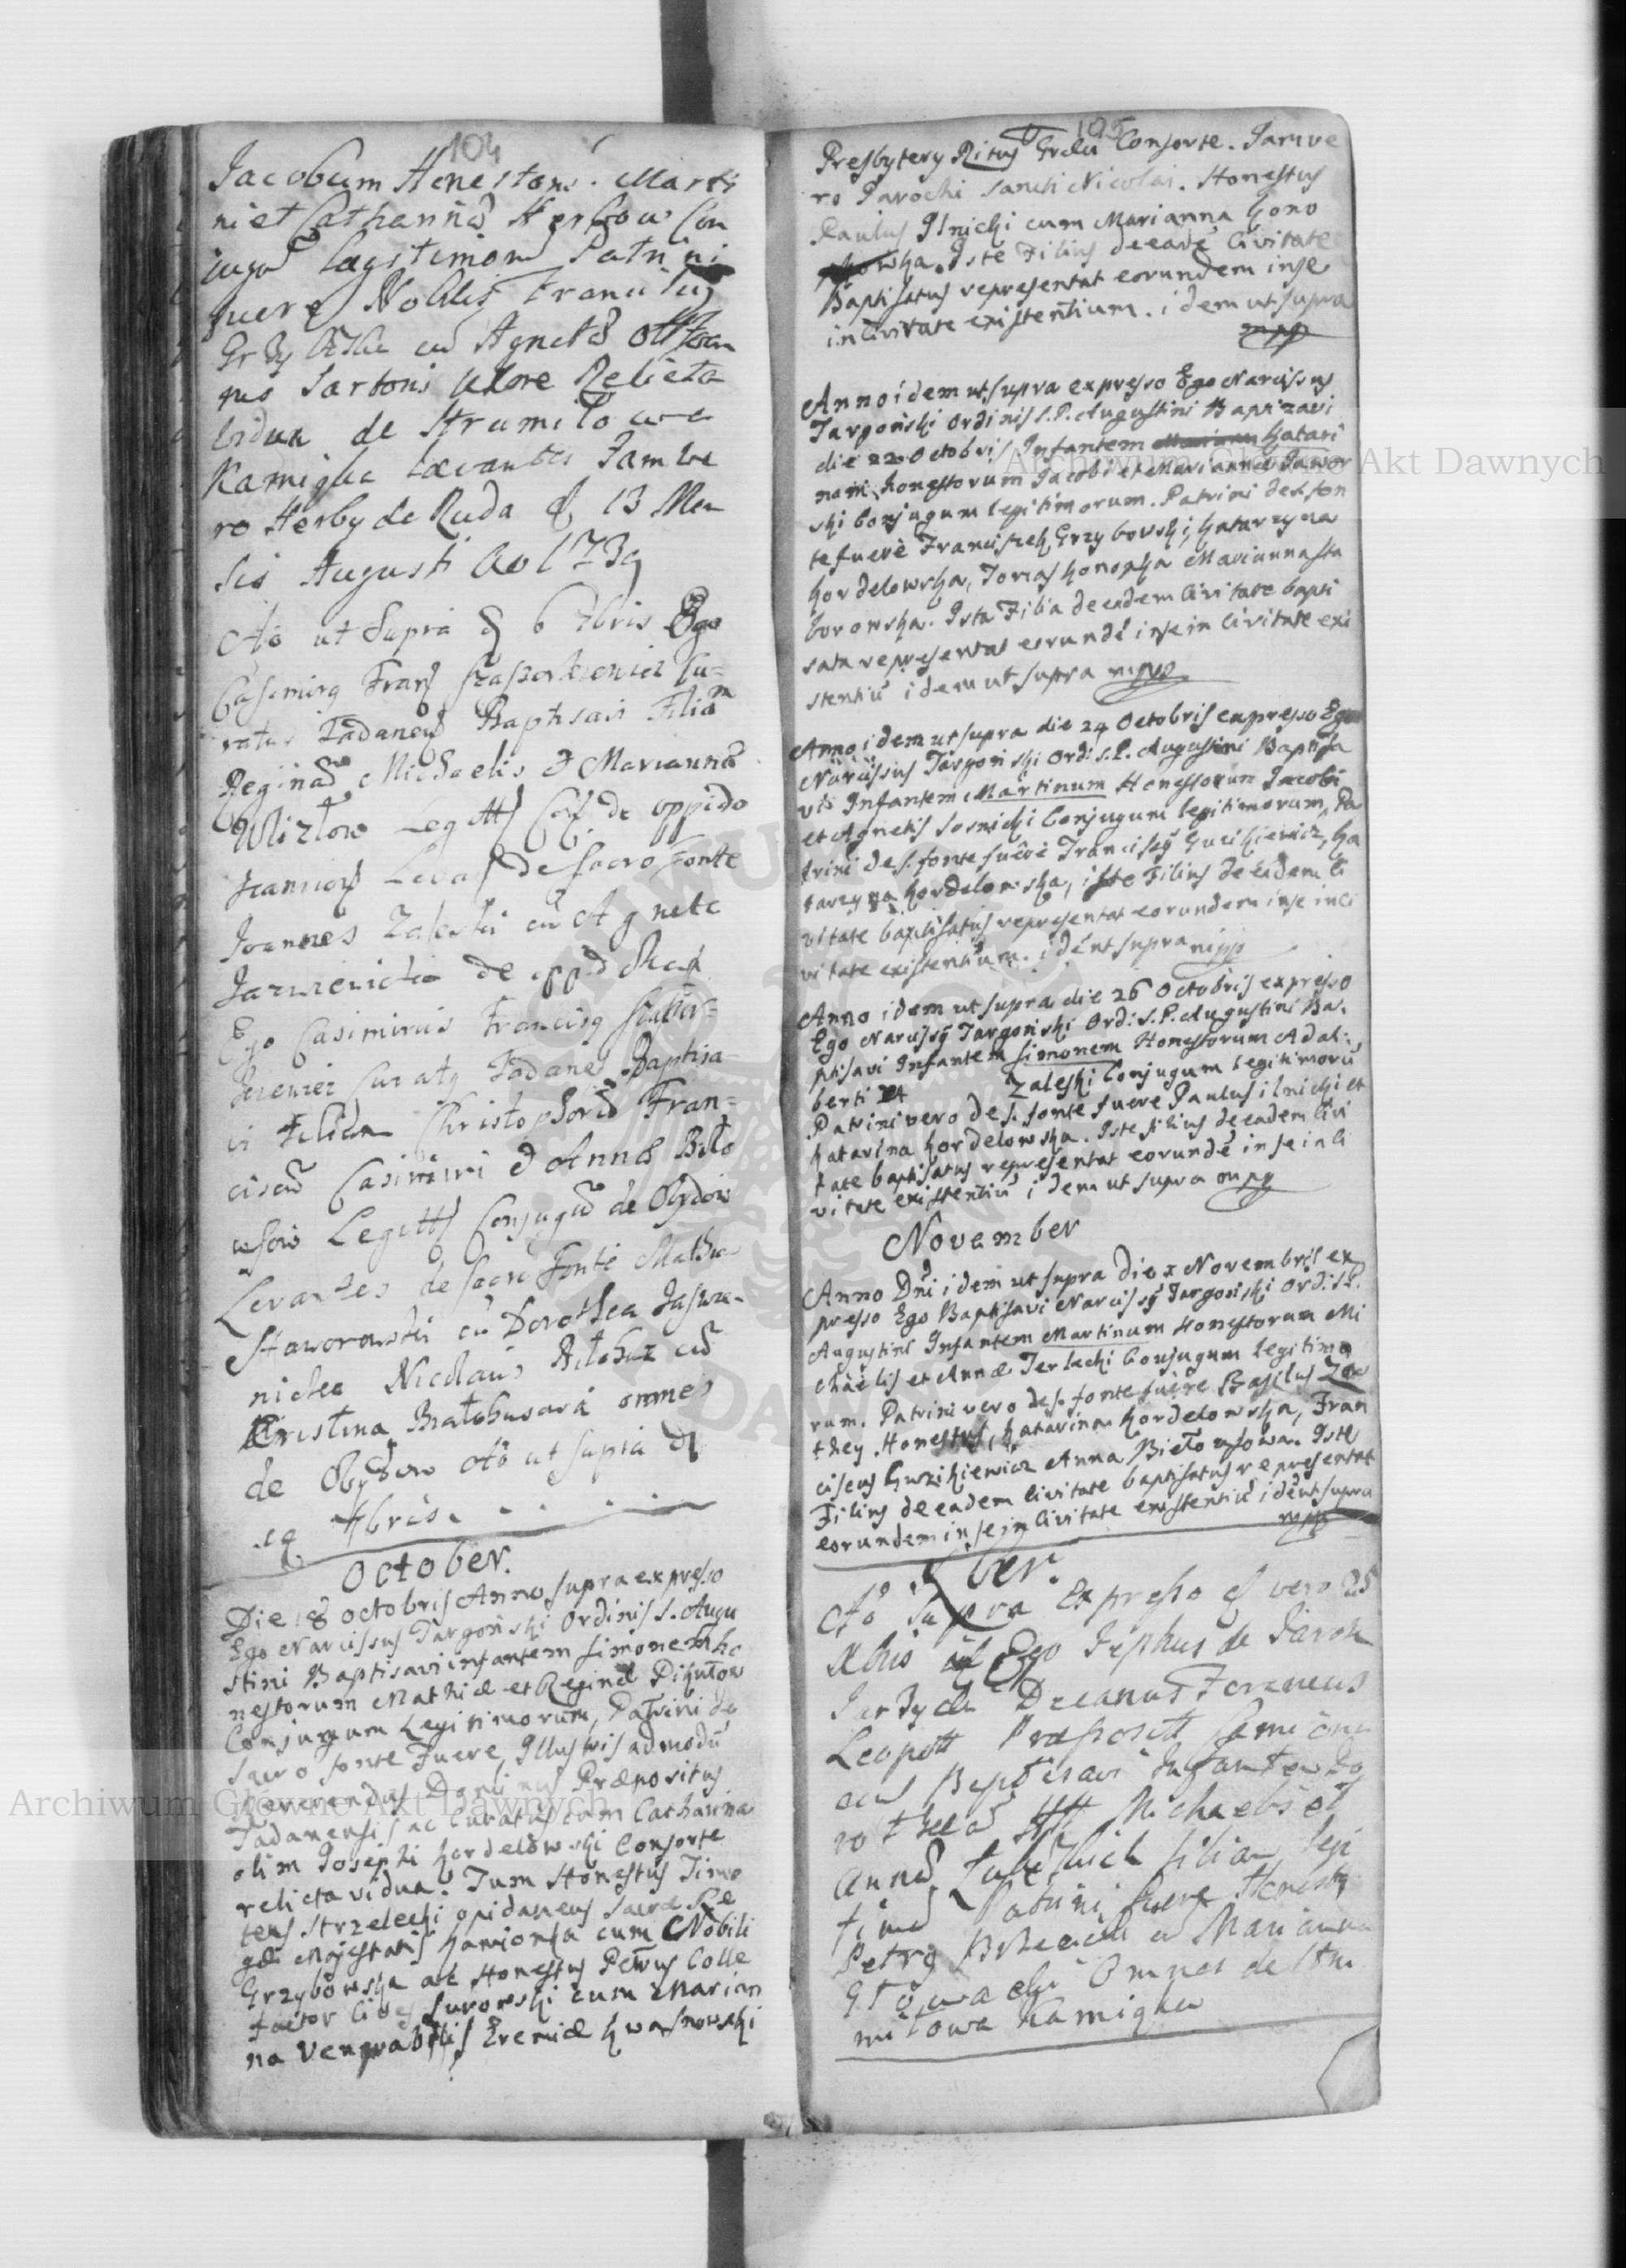 104
Jacobum Honestorum Marti
ni et Catharinæ Herbow Con
jugu Legitimoru Patrini
fuere Nobilis Franciscus
cu Agneta
Sartoris Uxore Relicta
vidua de Strumilowa
Kamiqka Levantes Jam ve
ro Herby de Ruda d 13 Men
sis Augusti Ao 1739
Ao ut Supra d 6 7bris Ego
Casimirq Franq Cu=
ratus Tadanens Baptisavi Filiam
Reginam Michaelis & Marianna
Legitt Conj de oppido
Levans de Sacro Fonte
Joannes Zaleski cu Agnete
de oppid
Ego Casimirus Franciscq
Curatq Tadanes Baptisa=
vi Christophoru Fran=
ciscu Casimiri & Anna Biło
usow Legitt Conjugu de Obydow
Levantes de sacro Fonte Mathias
Staworowski cu Dorothea
Nicolaus cu
Cristina omnes
de Obydow Ao ut supra d
7bris.
October.
Die 18 octobris Anno supra expresso
Ego Narcissus Targoński Ordinis S. Augu
stini Baptisavi infantem Simonem ho
nestorum Mathiæ et Reginæ Dikułow
Conjugum Legitimorum, Patrini de
sacro fonte Fuere, Illustris admodu
Reverendus Dominus Præpositus
Tadanensis ac Curatus cum Catharina
olim Josephi Kordelowski Consorte
relicta vidua. Tum Honestus Timo
teus Strzelecki opidaneus Sacræ Re
gæ Majestatis Kamionka cum Nobili
Grzybowska ac Honestus Petrus Colle
factor Cives Surowski cum Marian
na Venerabilis Eremiæ Kwasnowski
105
Presbytery Ritus Græci Consorte. Jam ve
ro Parochi Sancti Nicolai. Honestus
Paulus Ilnicki cum Marianna Kono
Iste Filius de eade Civitate
Baptisatus representat eorundem inse
in Civitate existentium. idem ut supra
mpp
Anno idem ut supra expresso Ego Narcissus
Targoński Ordinis S.P. Augustini Baptizavi
die 22 Octobris Infantem Katari
nam honestorum Jacobi et Mariannæ Jawor
ski Conjugum legitimorum. Patrini de s. fon
te fuere Franciszek Grzybowski, Katarzyna
Kordelowska, Tomas Konopka Marianna Sta
borowska. Ista Filia de eadem Civitate bapti
sata representat eorunde inse in Civitate exi
stentiu idem ut supra mpp
Anno idem ut supra die 24 Octobris expresso Ego
Narcissus Targoński Ordi: S.P. Augustini Baptisa
vi Infantem Martinum Honestorum Jacobi
et Agnetis Sosnicki Conjugum legitimorum, Pa
trini de s. fonte fuere Franciscq Guzikiewicz, Ka
tarzyna Kordelowska, iste Filius de eadem Ci
vitate baptisatus representat eorundem inse in Ci
vitate existentium. ide ut supra mpp
Anno idem ut supra die 26 Octobris expresso
Ego Narcissq Targoński Ord: S.P. Augustini Ba.
ptisavi Infantem Simonem Honestorum Adal:
berti et Zaleski Conjugum legitimoru
Patrini vero de s. fonte fuere Paulus ilnicki et
Katarina Kordelowska. Iste filius de eadem Civi
tate baptisatus representat eorunde inse in Ci
vitate existentiu idem ut supra mpp
November
Anno Dni idem ut supra Die x Novembris ex
presso Ego Baptisavi Narcissq Targoński Ord: S.P.
Augustini Infantem Martinum Honestorum Mi
chaelis et Annæ Terlecki Conjugum legitimo
rum. Patrini vero de s. fonte fuere Basilus
they Honestus, Katarina Kordelowska, Fran
ciscus Guzikiewicz Anna Biełousowa. Iste
Filius de eadem Civitate baptisatus representat
eorundem inse in Civitate existentiu ide ut supra
mpp
Xber.
Ao supra Expresso d vero 25
Xbris Ego Josephus de
Decanus Foraneus
Leopott Præposit
Baptisavi Infantem Do
rotheam HH Michaelis et
Annæ filiam legi
timam Patrini fuere Honestq
Petrq cu Marianna
Omnes de Stru
milowa Kamiqka
Archiwum Główne Akt Dawnych
Archiwum Główne Akt Dawnych